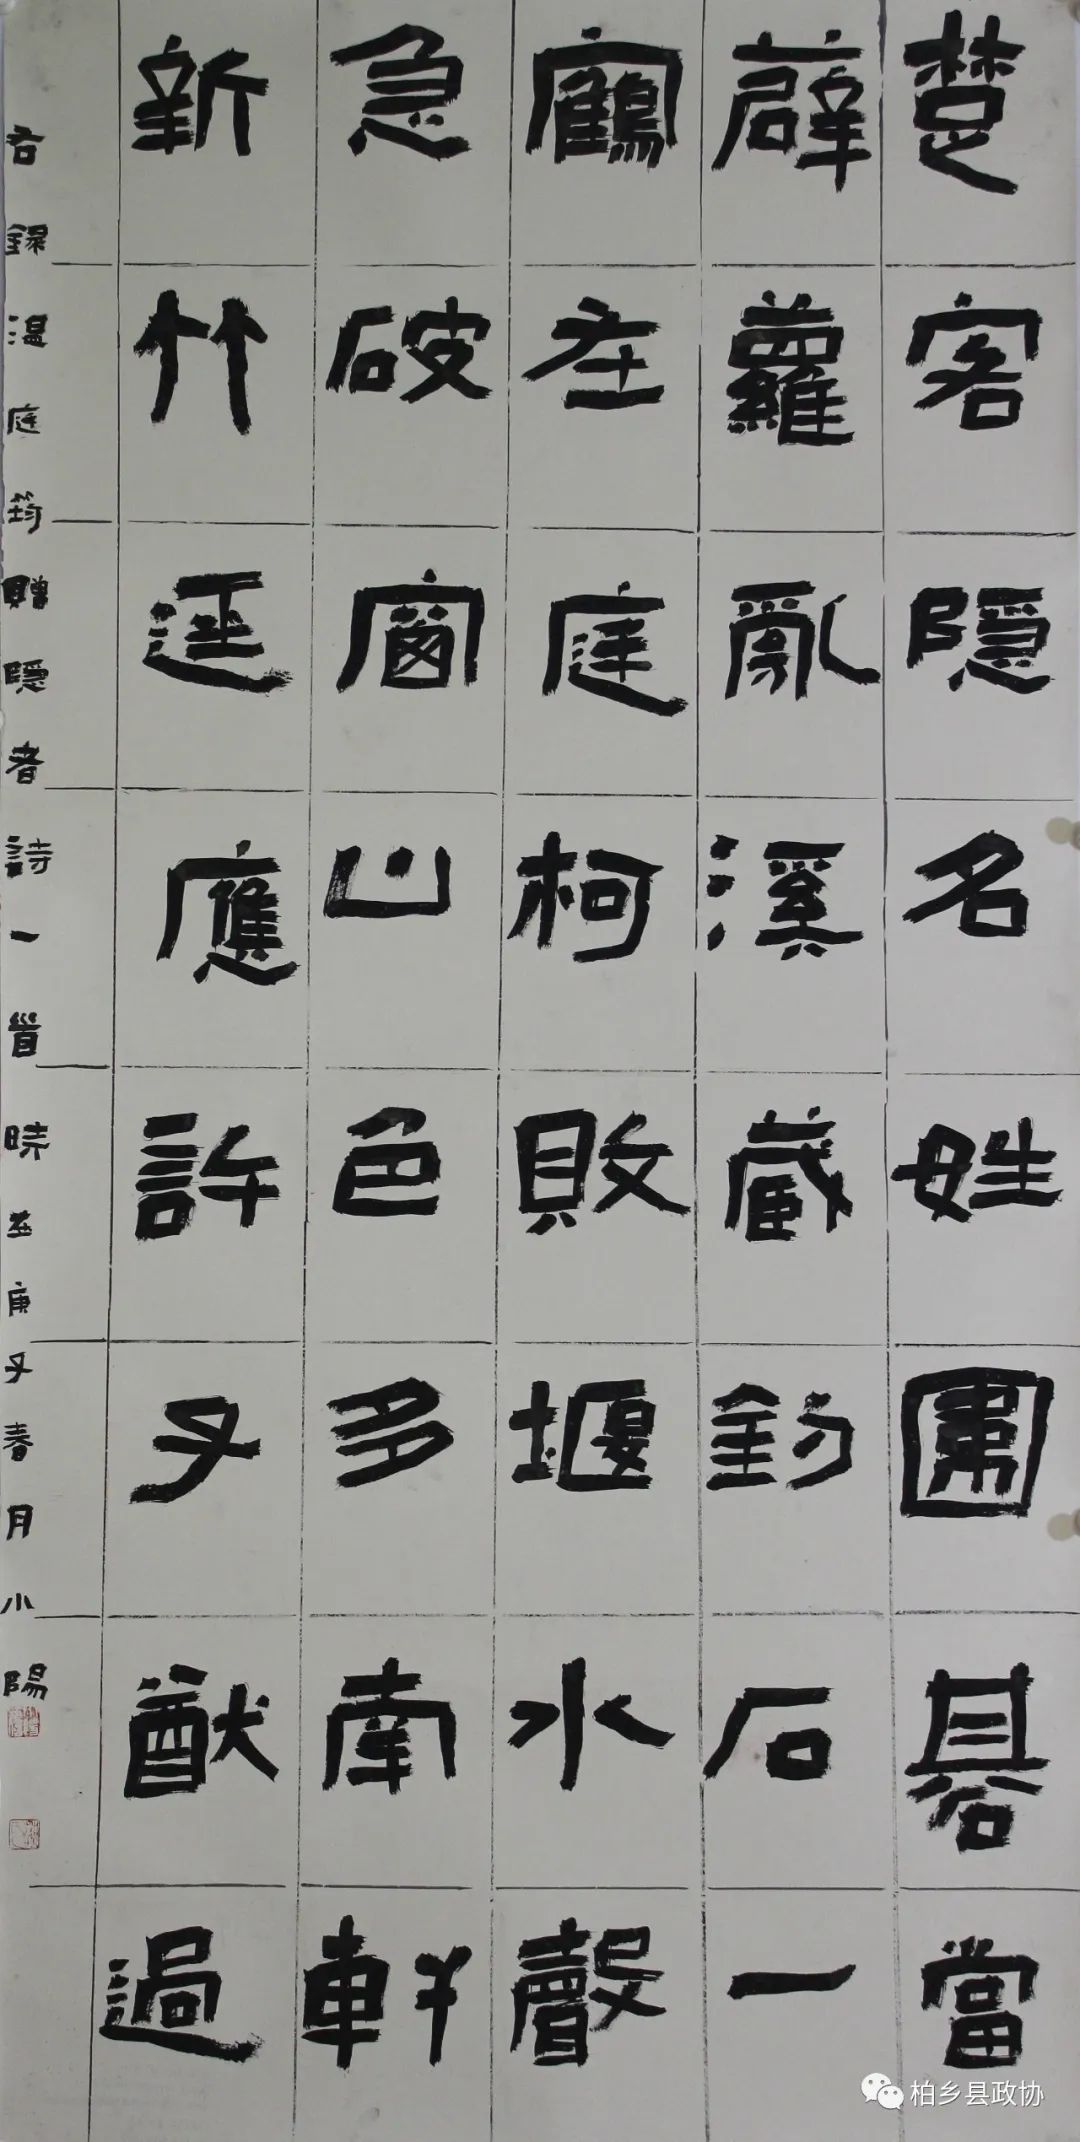 楚客隱名姓圍碁當
薜蘿亂溪藏釣石一
鶴在庭柯敗堰水聲
急破窗山色多南軒
新竹逕應許子猷過
右録温庭筠贈隱者詩一首時在庚子春月小陽
柏乡县政协